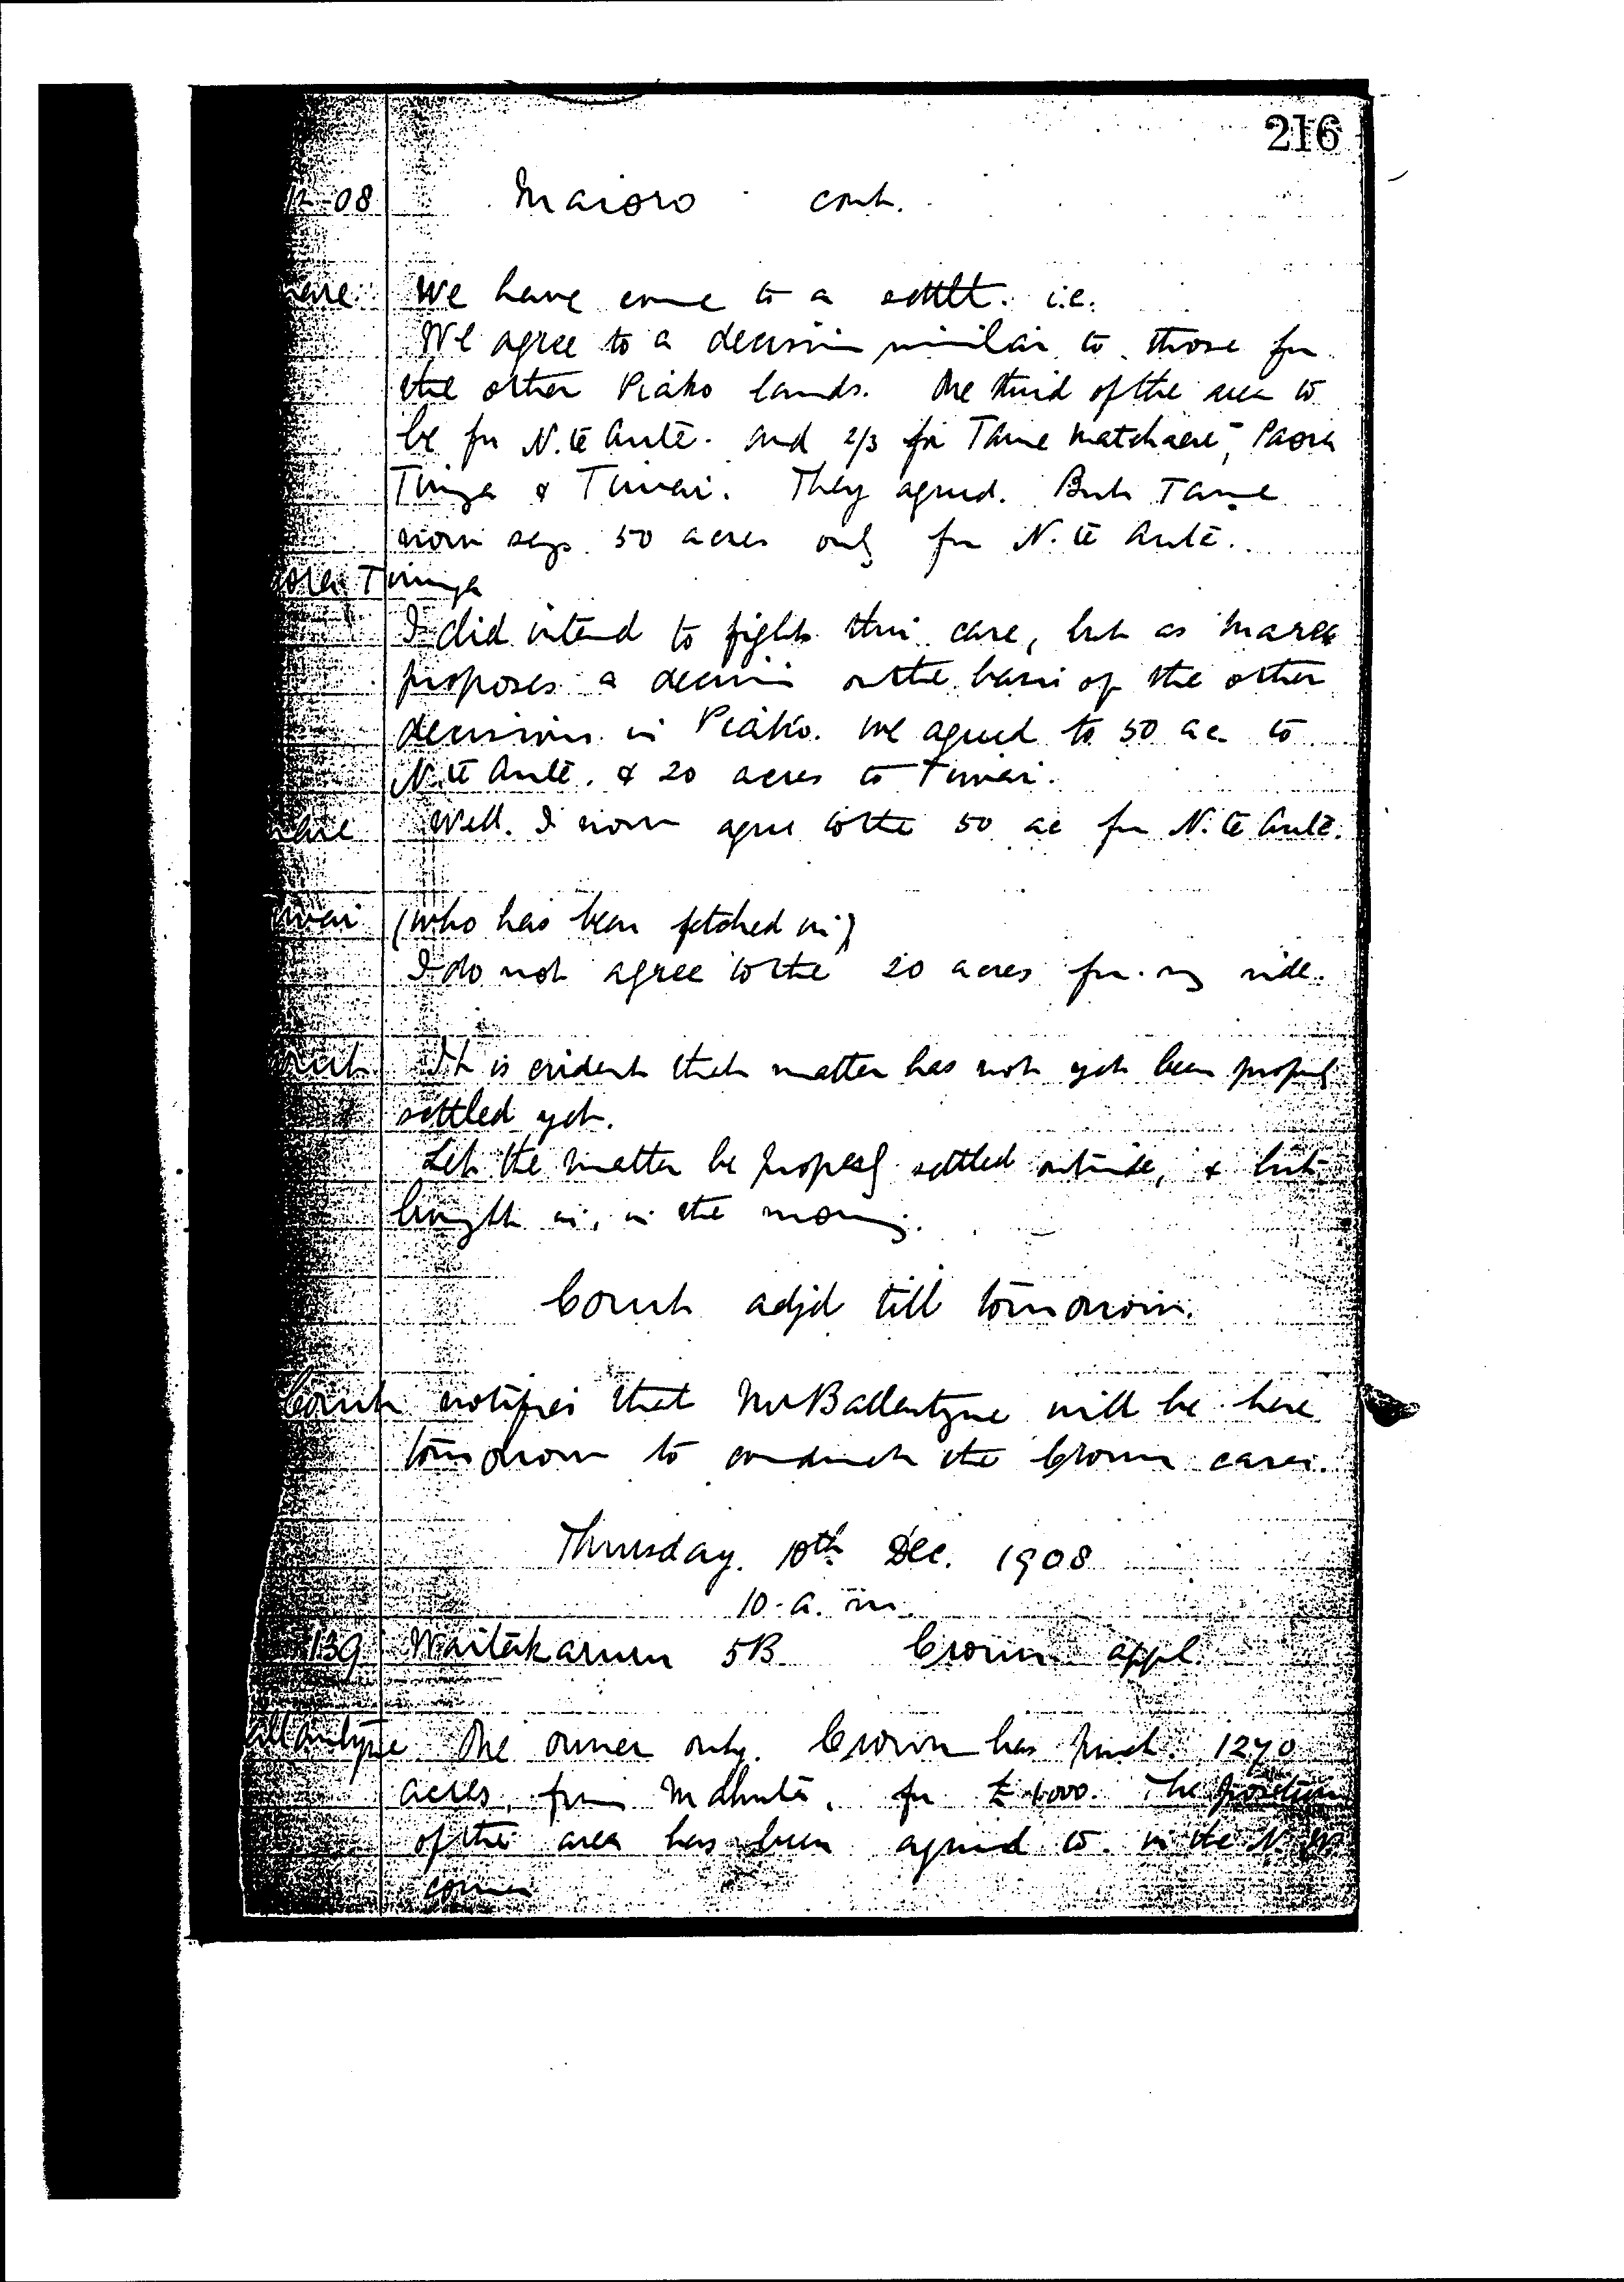 216
12-08 Maioro cont.
We have come to a settlt. i.e.
We agree to a decision similar to those for
the other Piako lands. One third of the area to
be for N. te Aute. and 2/3 for Tame Matehaere, Paora
Tiunga & Tiwai. They agreed. But Tame
now says 50 acres only for N. te Aute.
Tiunga
I did intend to fight this case, but as
proposes a decision on the basis of the other
decisions in Piako. We agreed to 50 ac to
N. te Aute. & 20 acres to Tiwai.
Well. I now agree to the 50 ac for N. te Aute.
(who has been fetched in)
I do not agree to the 20 acres for my side.
It is evident that matter has not yet been properly
settled yet.
Let the matter be properly settled outside, & but
brought in, in the morning.
Court adjd till tomorrow.
Court notifies that Mr Ballentyne will be here
tomorrow to conduct the Crown cases.
Thursday. 10th Dec. 1908
10. a. m.
139 Waitakaruru 5B Crown appl.
One owner only. Crown has purch. 1270
acres, from for £ 1.000. The position
of the area has been agreed to in the N. W.
corner